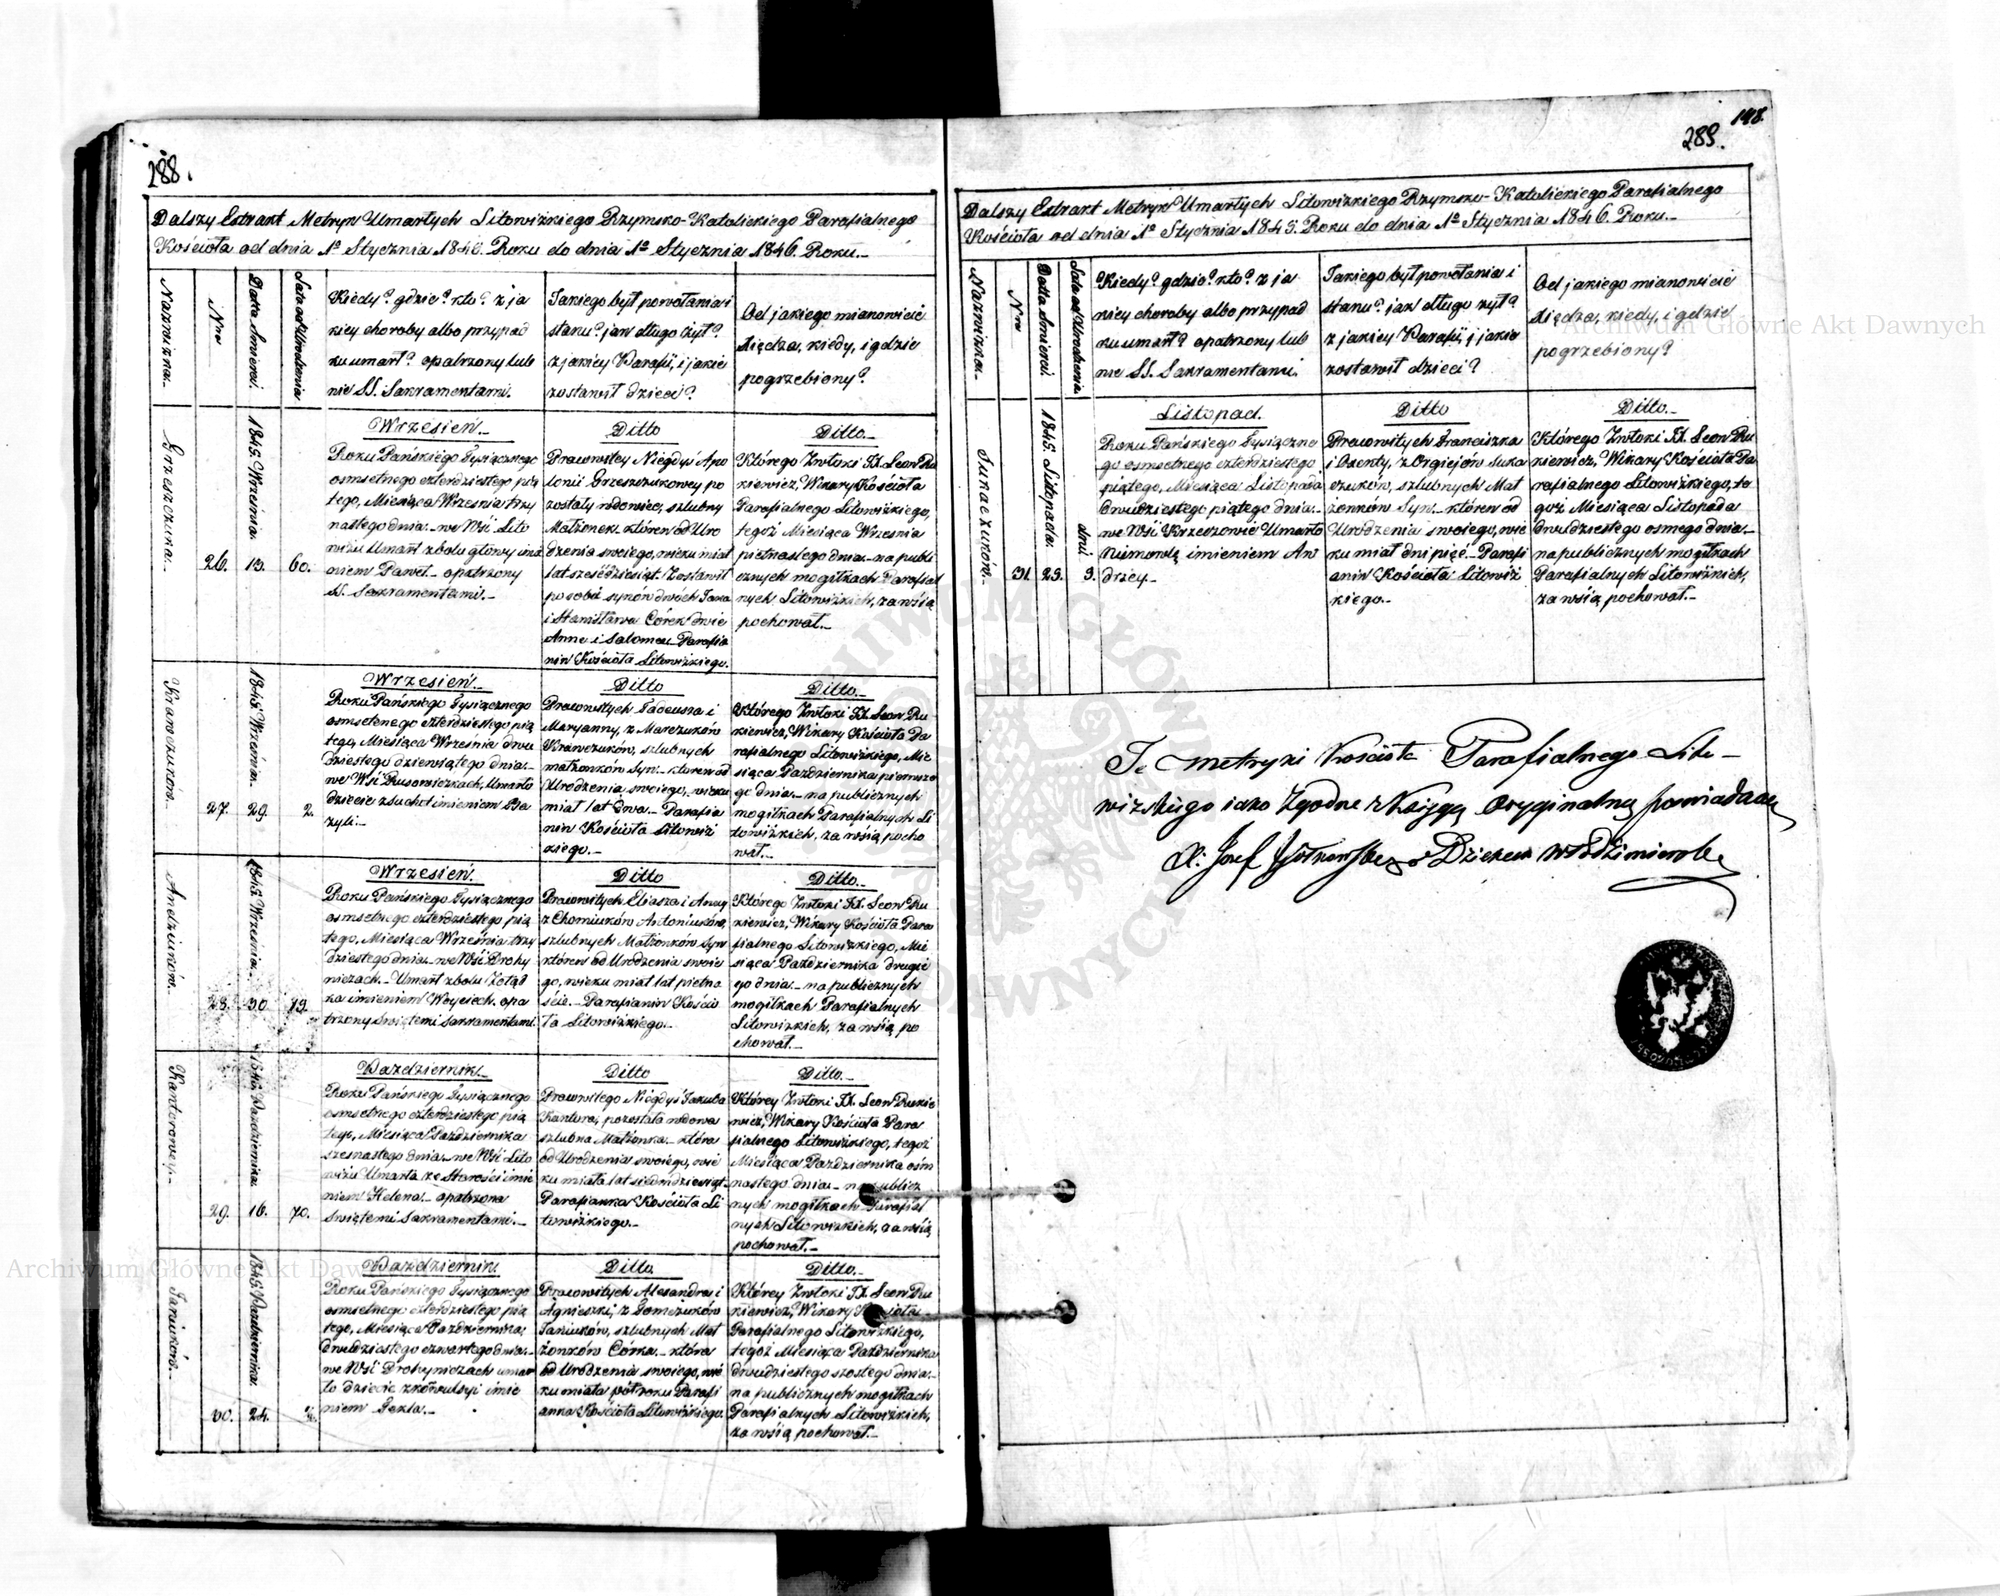 288.
Dalszy Extrakt Metryk Umarłych Litowizkiego Rzymsko-Katolickiego Parafialnego
Kościoła od dnia 1º Stycznia 1845. Roku do dnia 1º Stycznia 1846. Roku.-
Nazwizka.-
Nro
Datta Śmierci.
Lata od Urodzenia
Kiedy? gdzie? kto? z ja
kiey choroby albo przypad
ku umarł? opatrzony lub
nie SS. Sakramentami.
Jakiego był powołania i
stanu? jak długo żył?
z jakiey Parafii, i jakie
zostawił dzieci?
Od jakiego mianowicie
Xiędza, kiedy, i gdzie
pogrzebiony?
Grzeszczuka.
26.
1845. Września.
13.
60.
Wrzesień.-
Roku Pańskiego Tysiącznego
osmsetnego czterdziestego pią
tego, Miesiąca Września trzy
nastego dnia.- we Wsi Lito
wiżu Umarł z bolu głowy imie
niem Paweł.- opatrzony
S. Sakramentami.-
Ditto
Pracowitey Niegdyś Apo
lonii Grzeszczukowey po
zostały wdowiec, szlubny
Małżonek, któren od Uro
dzenia swoiego, wieku miał
lat sześćdziesiąt. Zostawił
po sobie synów dwóch Jana
i Stanisława Córek dwie
Anne i Salomeu Parafia
nin Kościoła Litowizkiego.
Ditto.-
Którego Zwłoki X. Leon Ru
kiewicz, Wikary Kościoła
Parafialnego Litowizkiego,
tegoż Miesiąca Września
pietnastego dnia.- na publi
cznych mogiłkach Parafial
nych Litowizkich, za wsią
pochował.-
Krawczuków.
27.
1845. Wrzesień.
29.
2.
Wrzesień.-
Roku Pańskiego Tysiącznego
osmsetnego czterdziestego pią
tego, Miesiąca Września dwu
dziestego dziewiątego dnia.-
we Wsi Rusowiczkach, Umarło
dziecie z suchot imieniem Ba
zyli.-
Ditto
Pracowitych Tadeusza i
Maryanny, z Marczuków
Krawczuków, szlubnych
małżonków Syn.- któren od
Urodzenia swoiego, wieku
miał lat dwa.- Parafia
nin Kościoła Litowiz
kiego.-
Ditto.-
Którego Zwłoki X. Leon Ru
kiewicz, Wikary Kościoła Pa
rafialnego Litowizkiego, Mie
siąca Października pierwsze
go dnia.- na publicznych
mogiłkach Parafialnych Li
towizkich, za wsią pocho
wał.-
28.
1845. Września.
30.
15.
Wrzesień.
Roku Pańskiego Tysiącznego
osmsetnego czterdziestego pią
tego, Miesiąca Września trzy
dziestego dnia.- we Wsi Drohy
niczach.- Umarł z bolu Żołąd
ka imieniem Woyciech. opa
trzony Świętemi Sakramentami.
Ditto
Pracowitych Eliasza i Anny
z Chomiuków Antoniuków,
szlubnych Małżonków Syn
któren od Urodzenia swoie
go, wieku miał lat pietna
ście.- Parafianin Kościo
ła Litowizkiego.-
Ditto.-
Którego Zwłoki X. Leon Ru
kiewicz, Wikary Kościoła Para
fialnego Litowizkiego, Mie
siąca Października drugie
go dnia.- na publicznych
mogiłkach Parafialnych
Litowizkich, za wsią po
chował.-
Kantorowey.-
29.
1845. Października.
16.
70.
Październik.-
Roku Pańskiego Tysiącznego
osmsetnego czterdziestego pią
tego, Miesiąca Października
szesnastego dnia.- we Wsi Lito
wiżu Umarła ze Starości imie
niem Helena.- opatrzona
Świętemi Sakramentami.-
Ditto
Pracowitego Niegdyś Jakuba
Kantora, pozostała wdowa
szlubna Małżonka.- która
od Urodzenia swoiego, wie
ku miała lat siedmdziesiąt.-
Parafianka Kościoła Li
towizkiego.-
Ditto.-
Którey Zwłoki X. Leon Rukie
wicz, Wikary Kościoła Para
fialnego Litowizkiego, tegoż
Miesiąca Października ośm
nastego dnia.- na publicz
nych mogiłkach Parafial
nych Litowizkich, za wsią
pochował.-
Janiuków.
30.
1845. Października.
24.
½.
Październik.
Roku Pańskiego Tysiącznego
osmsetnego czterdziestego pią
tego, Miesiąca Października,
dwudziestego czwartego dnia.-
we Wsi Drohyniczach umar
ło dziecie z konwulsyi imie
niem Tekla.-
Ditto.
Pracowitych Alexandra i
Agnieszki, z Tomczuków
Janiuków, szlubnych Mał
żonków Córka.- która
od Urodzenia swoiego, wie
ku miała pół roku Parafi
anka Kościoła Litowizkiego.
Ditto.-
Którey Zwłoki X. Leon Ru
kiewicz, Wikary Kościoła
Parafialnego Litowizkiego,
tegoż Miesiąca Października
dwudziestego szostego dnia.-
na publicznych mogiłkach
Parafialnych Litowizkich,
za wsią pochował.-
148.
289.
Dalszy Extrakt Metryk Umarłych Litowizkiego Rzymsko-Katolickiego Parafialnego
Kościoła od dnia 1º Stycznia 1845. Roku do dnia 1º Stycznia 1846. Roku.-
Nazwizka.-
Nro
Datta Śmierci.
Lata od Urodzenia
Kiedy? gdzie? kto? z ja
kiey choroby albo przypad
ku umarł? opatrzony lub
nie SS. Sakramentami.
Jakiego był powołania i
stanu? jak długo żył?
z jakiey Parafii, i jakie
zostawił dzieci?
Od jakiego mianowicie
Xiędza, kiedy, i gdzie
pogrzebiony?
Sukaczuków.
31.
1845. Listopada.
25.
dni
5.
Listopad.
Roku Pańskiego Tysiączne
go osmsetnego czterdziestego
piątego, Miesiąca Listopada
dwudziestego piątego dnia.-
we Wsi Krzeczowie Umarło
Niemowlę imieniem An
drzey.-
Ditto
Pracowitych Franciszka
i Oxenty, z Orgiejów Suka
czuków, szlubnych Mał
żonków Syn.- któren od
Urodzenia swoiego, wie
ku miał dni pięć.- Parafi
anin Kościoła Litowiz
kiego.-
Ditto.-
Którego Zwłoki X. Leon Ru
kiewicz, Wikary Kościoła Pa
rafialnego Litowizkiego, te
goż Miesiąca Listopada
dwudziestego osmego dnia.-
na publicznych mogiłkach
Parafialnych Litowizkich,
za wsią pochował.-
Te metryki Kościoła Parafialnego Lito-
wizkiego iako Zgodne z Xięgą Oryginalną poswiadczam
X. Józef Dziekan Włodzimierski
Archiwum Główne Akt Dawnych
Archiwum Główne Akt Dawnych